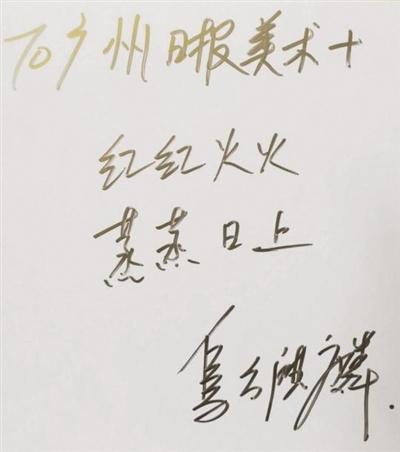 TO 广州日报美术+
红红火火
蒸蒸日上